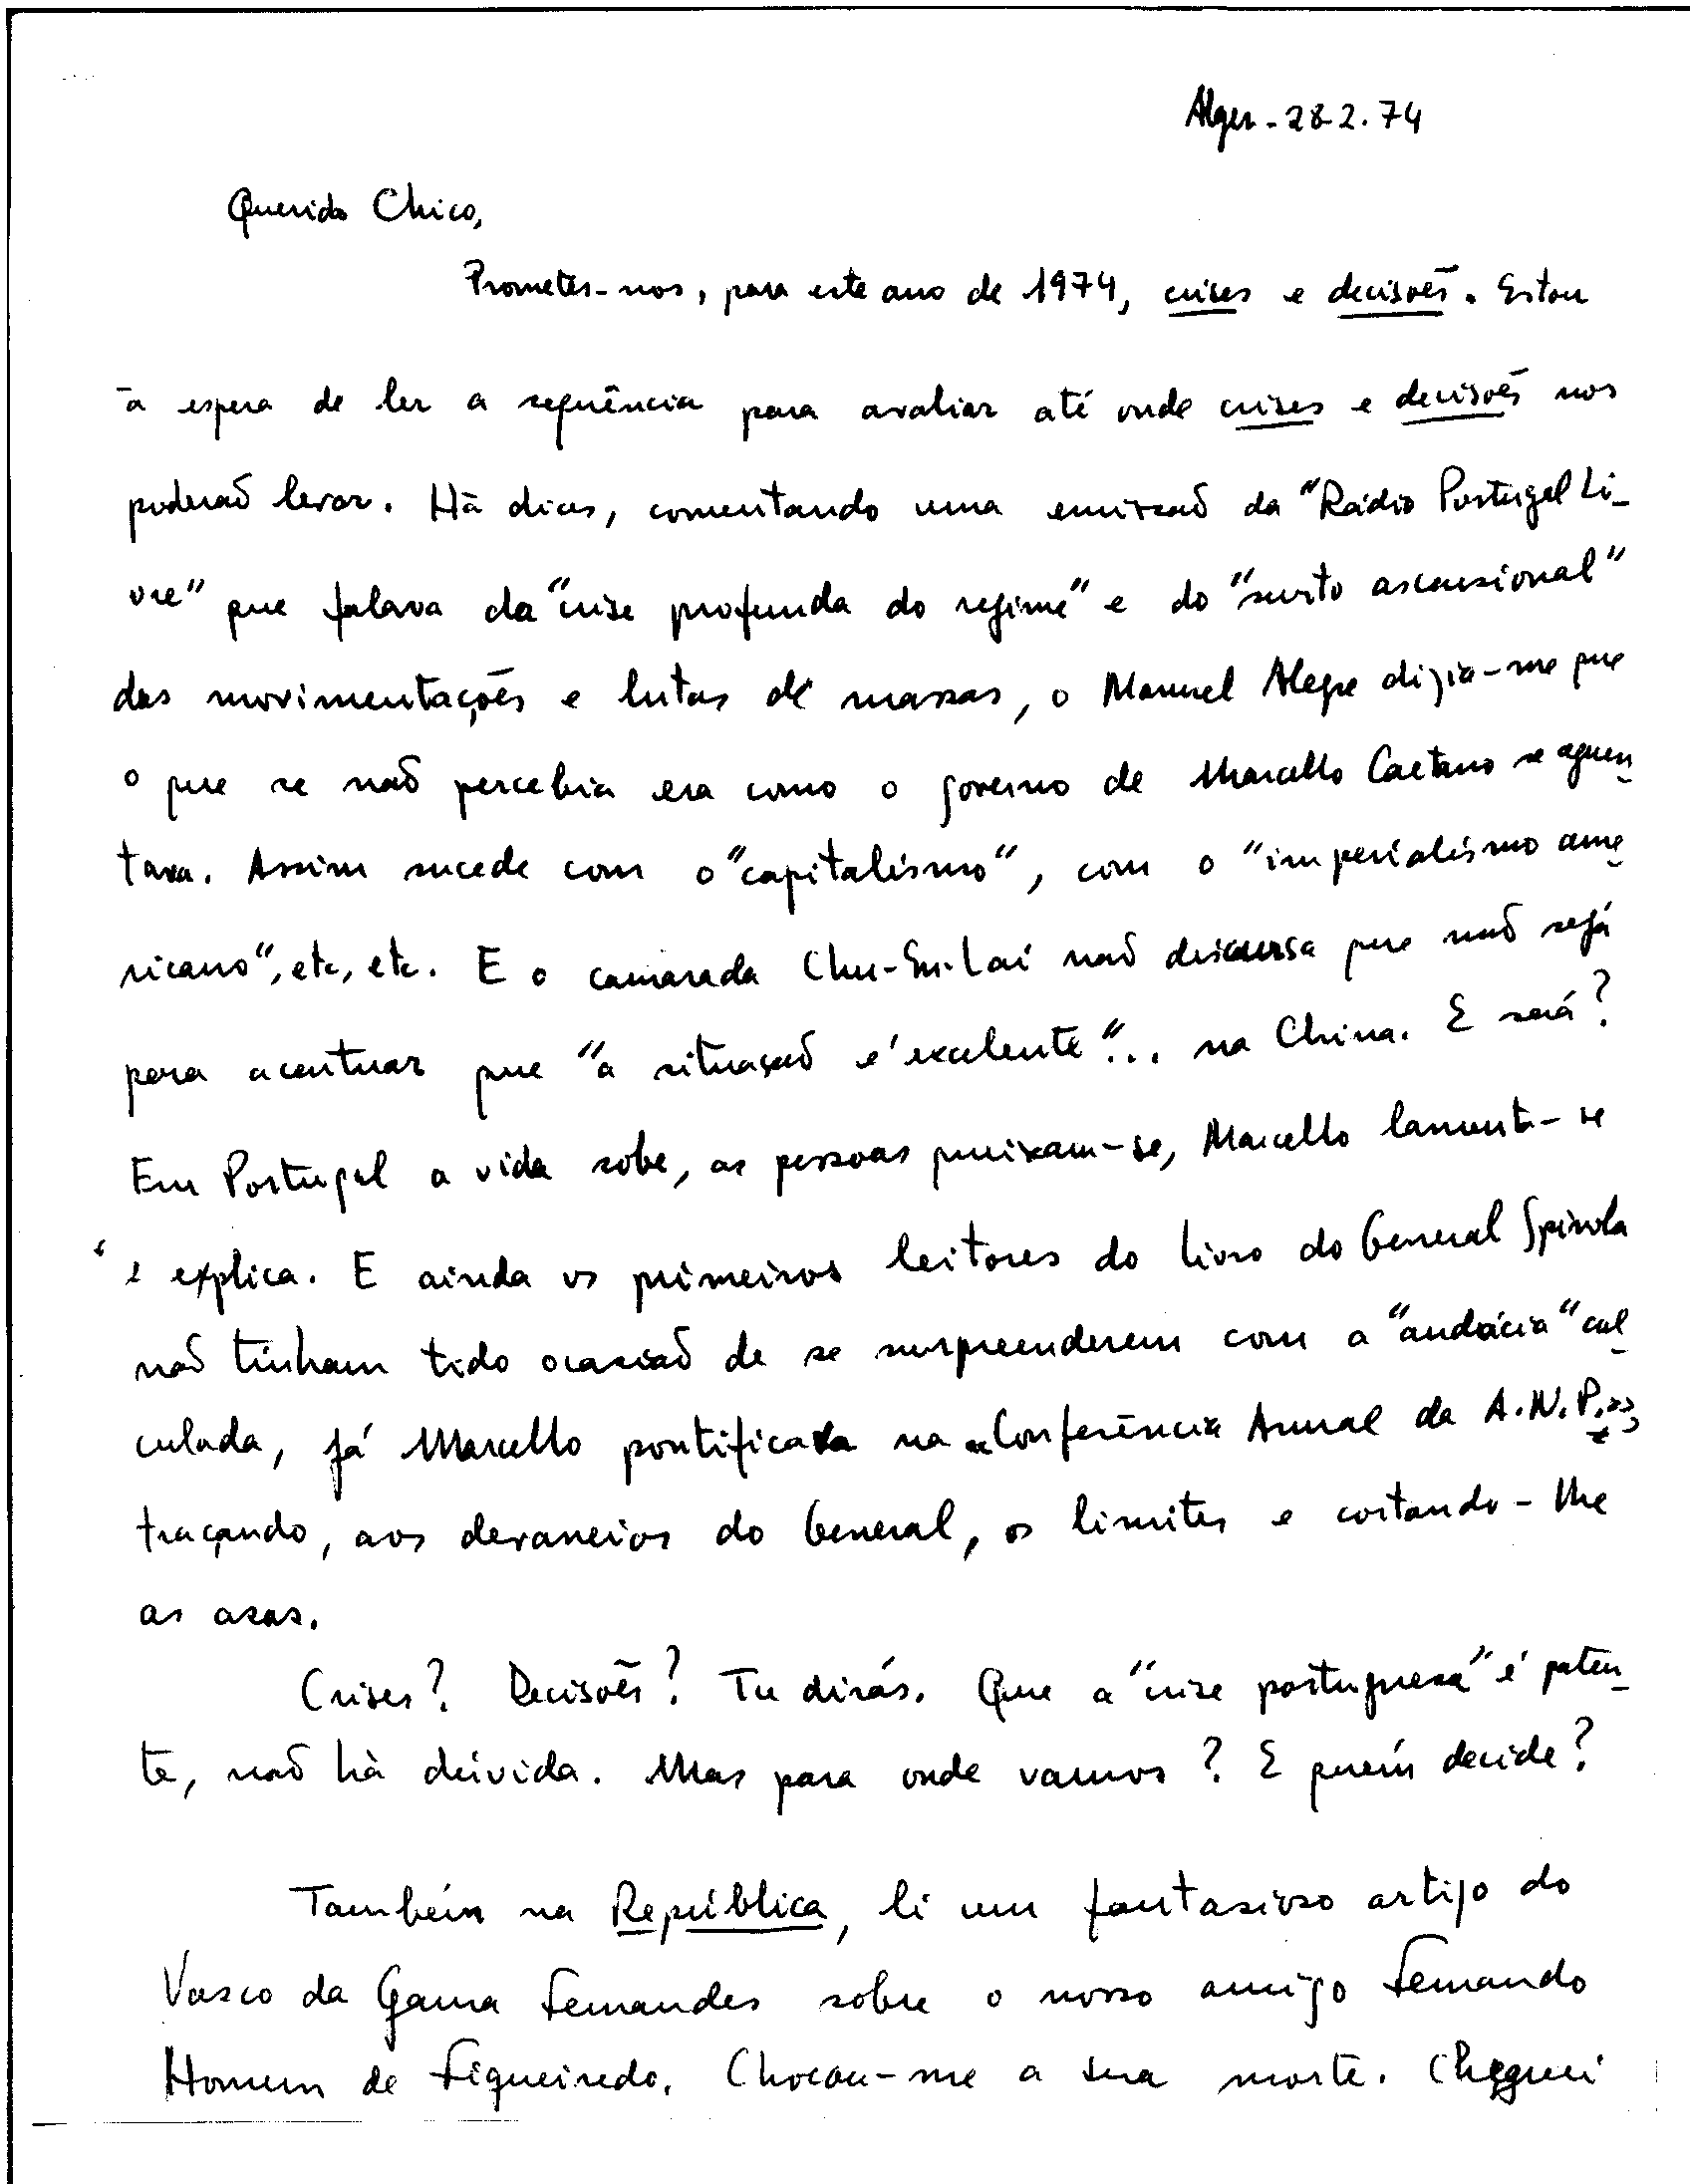 Alger - 28.2.74
Querido Chico,
Prometes-nos, para este ano de 1974, crises e decisões. Estou
à espera de ler a sequência para avaliar até onde crises e decisões nos
poderão levar. Há dias, comentando uma emissão da "Rádio Portugal Li-
vre" que falava da "crise profunda do regime" e do "surto ascensional"
das movimentações e lutas de massas, o Manuel Alegre dizia-me que
o que se não percebia era como o governo de Marcello Caetano se aguen-
tava. Assim sucede com o "capitalismo", com o "imperialismo ame-
ricano", etc, etc. E o camarada Chu-En-Lai não discursa que não seja
para acentuar que "a situação é excelente"... na China. E será?
Em Portugal a vida sobe, as pessoas queixam-se, Marcello lamenta-se
e explica. E ainda os primeiros leitores do livro do General Spínola
não tinham tido ocasião de se surpreenderem com a "audácia" cal-
culada, já Marcello pontificava na «Conferência Anual da A.N.P.»,
traçando, aos devaneios do General, os limites e cortando-lhe
as asas.
Crises? Decisões? Tu dirás. Que a "crise portuguesa" é paten-
te, não há dúvida. Mas para onde vamos? E quem decide?
Também na República, li um fantasioso artigo do
Vasco da Gama Fernandes sobre o nosso amigo Fernando
Homem de Figueiredo. Chocou-me a sua morte. Cheguei